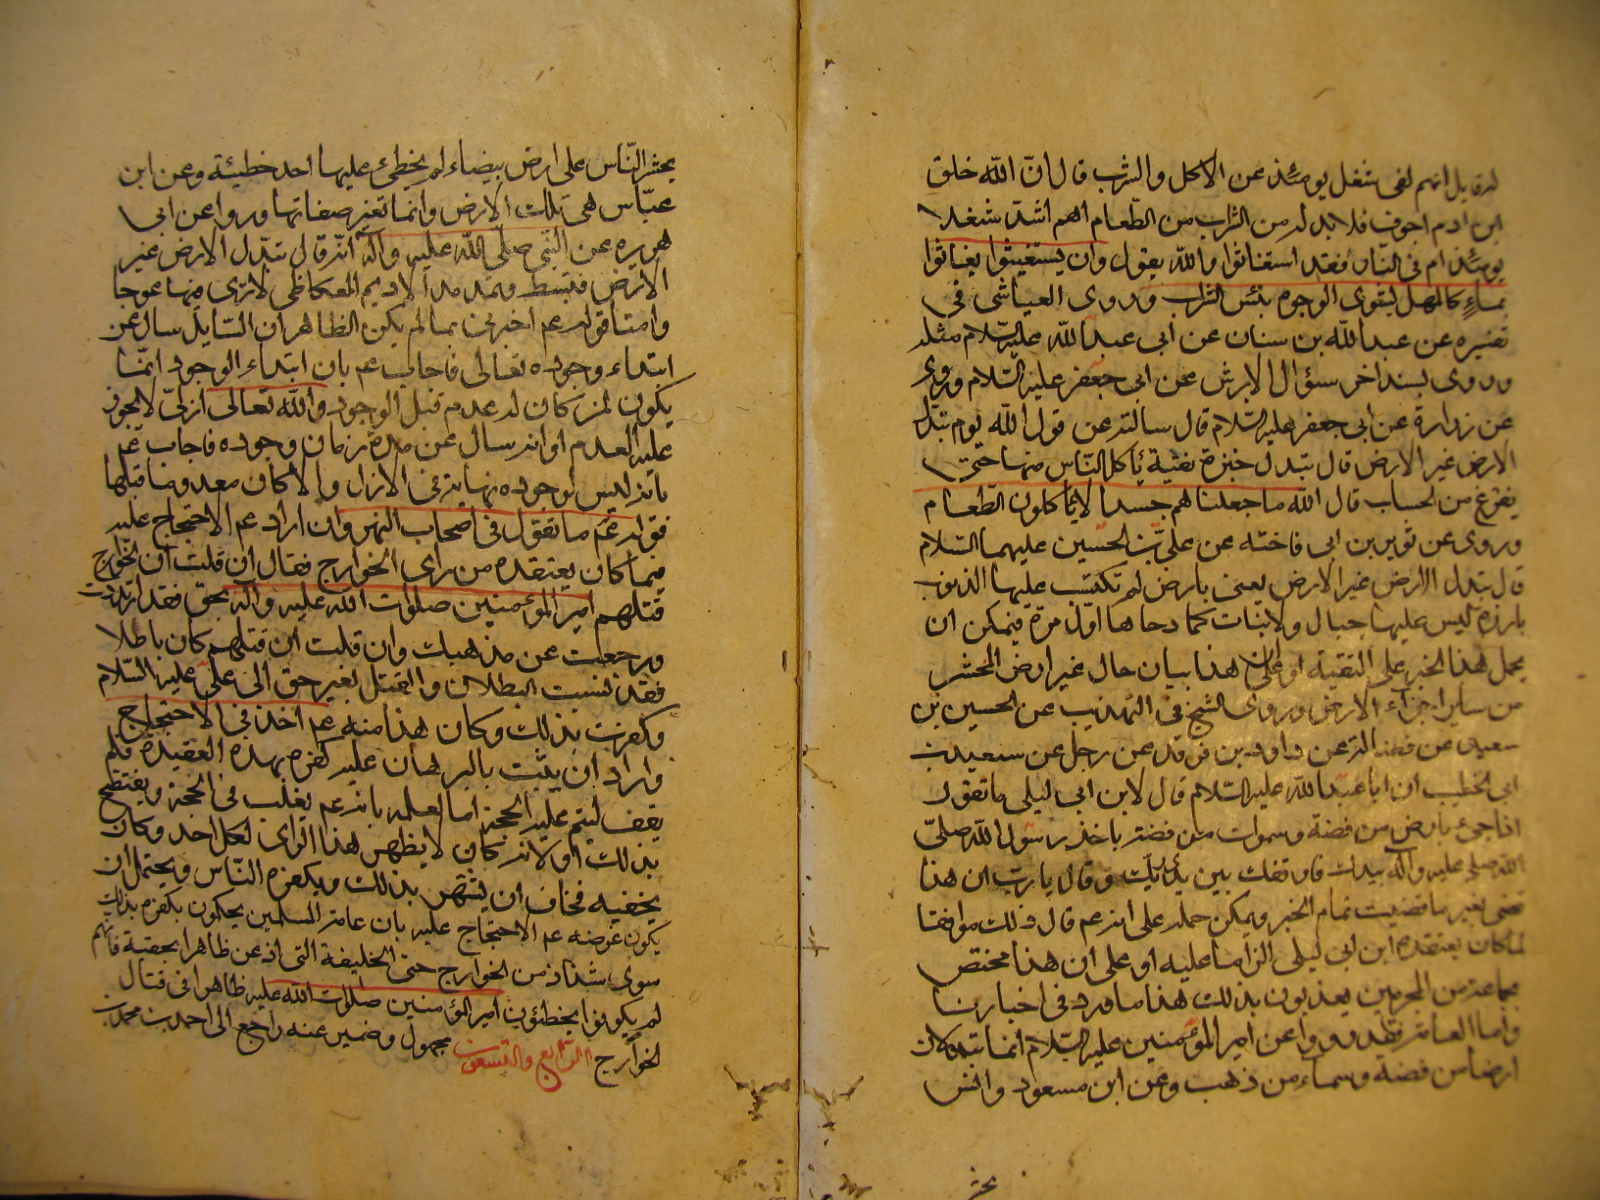 له قايل انهم لفى شغل يومئذ عن الاكل والشرب قال ان الله خلق
ابن ادم اجوف فلا بد له من الشراب من الطعام اهم اشدّ شغلا
يومئذ ام فى النار فقد استغاثوا والله يقول وان يستغيثوا يغاثوا
بماء كالمهل يشوى الوجوه بئس الشراب وروى العياشى فى
تفسيره عن عبد الله بن سنان عن ابى عبد الله عليه السّلام مثله
وروى بسند اخر سؤال الابرش عن ابى جعفر عليه السّلام وروى
عن زرارة عن ابى جعفر عليه السّلام قال سالته عن قول الله يوم تبدّل
الارض غير الارض قال تبدل خبزة نقيّة يأكل النّاس منها حتى
يفرغ من الحساب قال الله ما جعلناهم جسدا لا يأكلون الطعام
وروى عن ثوير بن ابى فاخته عن على بن الحسين عليهما السّلام
قال تبدل الارض غير الارض يعنى بارض لم تكتسب عليها الذنوب
بارزة ليس عليها جبال ولا نبات كما دحاها اوّل مرة فيمكن ان
يحمل هذا الخبر على التقية او على ان هذا بيان حال غير ارض المحشر
من ساير اجزاء الارض وروى الشيخ فى التهذيب عن الحسين بن
سعيد عن فضالة عن داود بن فرقد عن رجل عن سعيد بن
ابى الخطيب ان ابا عبد الله عليه السّلام قال لابن ابى ليلى ما تقول
اذا جئ بارض من فضة وسموات من فضة ثم اخذ رسول الله صلّى
الله صلى عليه وآله بيدك فاوقفك بين يدى ربك وقال يا رب ان هذا
قضى بغير ما قضيت تمام الخبر ويمكن حمله على انه عم قال ذلك موافقا
لما كان يعتقده ابن ابى ليلى الزاما عليه او على ان هذا مختص
بجماعة من المجرمين يعذبون بذلك هذا ما ورد فى اخبارنا
واما العامة فقد رووا عن امير المؤمنين عليه السّلام انما تبدلان
ارضا من فضة وسماء من ذهب وعن ابن مسعود وانس
يحشر
يحشر النّاس على ارض بيضاء لم يخطئ عليها احد خطيئة وعن ابن
عبّاس هى تلك الارض وانما تغير صفاتها ورووا عن ابى
هريره عن النّبى صلّى الله عليه وآله انّه قال تبدّل الارض غير
الارض فتبسط وتمد مد الاديم العكاظى لا ترى فيها عوجا
وامتا قوله عم اخبرنى بما لم يكن الظاهر ان السّايل سال عن
ابتداء وجوده تعالى فاجاب عم بان ابتداء الوجود انّما
يكون لمن كان له عدم قبل الوجود والله تعالى ازلىّ لا يجوز
عليه العدم او انه سال عن مدة زمان وجوده فاجاب عم
بانه ليس لوجوده نهاية فى الازل والا كان معدوما قبلها
قوله عم ما تقول فى اصحاب النهروان اراد عم الاحتجاج عليه
فيما كان يعتقده من راى الخوارج فقال ان قلت ان الخوارج
قتلهم امير المؤمنين صلوات الله عليه وآله بحق فقد ارتددت
ورجعت عن مذهبك وان قلت ان قتلهم كان باطلا
فقد نسبت البطلان والقتل بغير حق الى على عليه السّلام
وكفرت بذلك وكان هذا منه عم اخذ فى الاحتجاج
واراد ان يثبت بالبرهان عليه كفره بهذه العقيدة فلم
يقف ليتم عليه الحجة اما لعلمه بانه عم يغلب فى الحجة ويفتضح
بذلك او لانه كان لا يظهر هذا الراى لكل احد وكان
يخفيه فخاف ان يشتهر بذلك ويكفره النّاس ويحتمل ان
يكون غرضه عم الاحتجاج عليه بان عامة المسلمين يحكمون بكفره بذلك
سوى شذاذ من الخوارج حتى الخليفة التى اذعن ظاهرا بحقية فانهم
لم يكونوا يخطئون امير المؤمنين صلوات الله عليه ظاهرا فى قتال
الخوارج الرّابع والتسعون مجهول وضمير عنه راجع الى احمد بن محمد بن